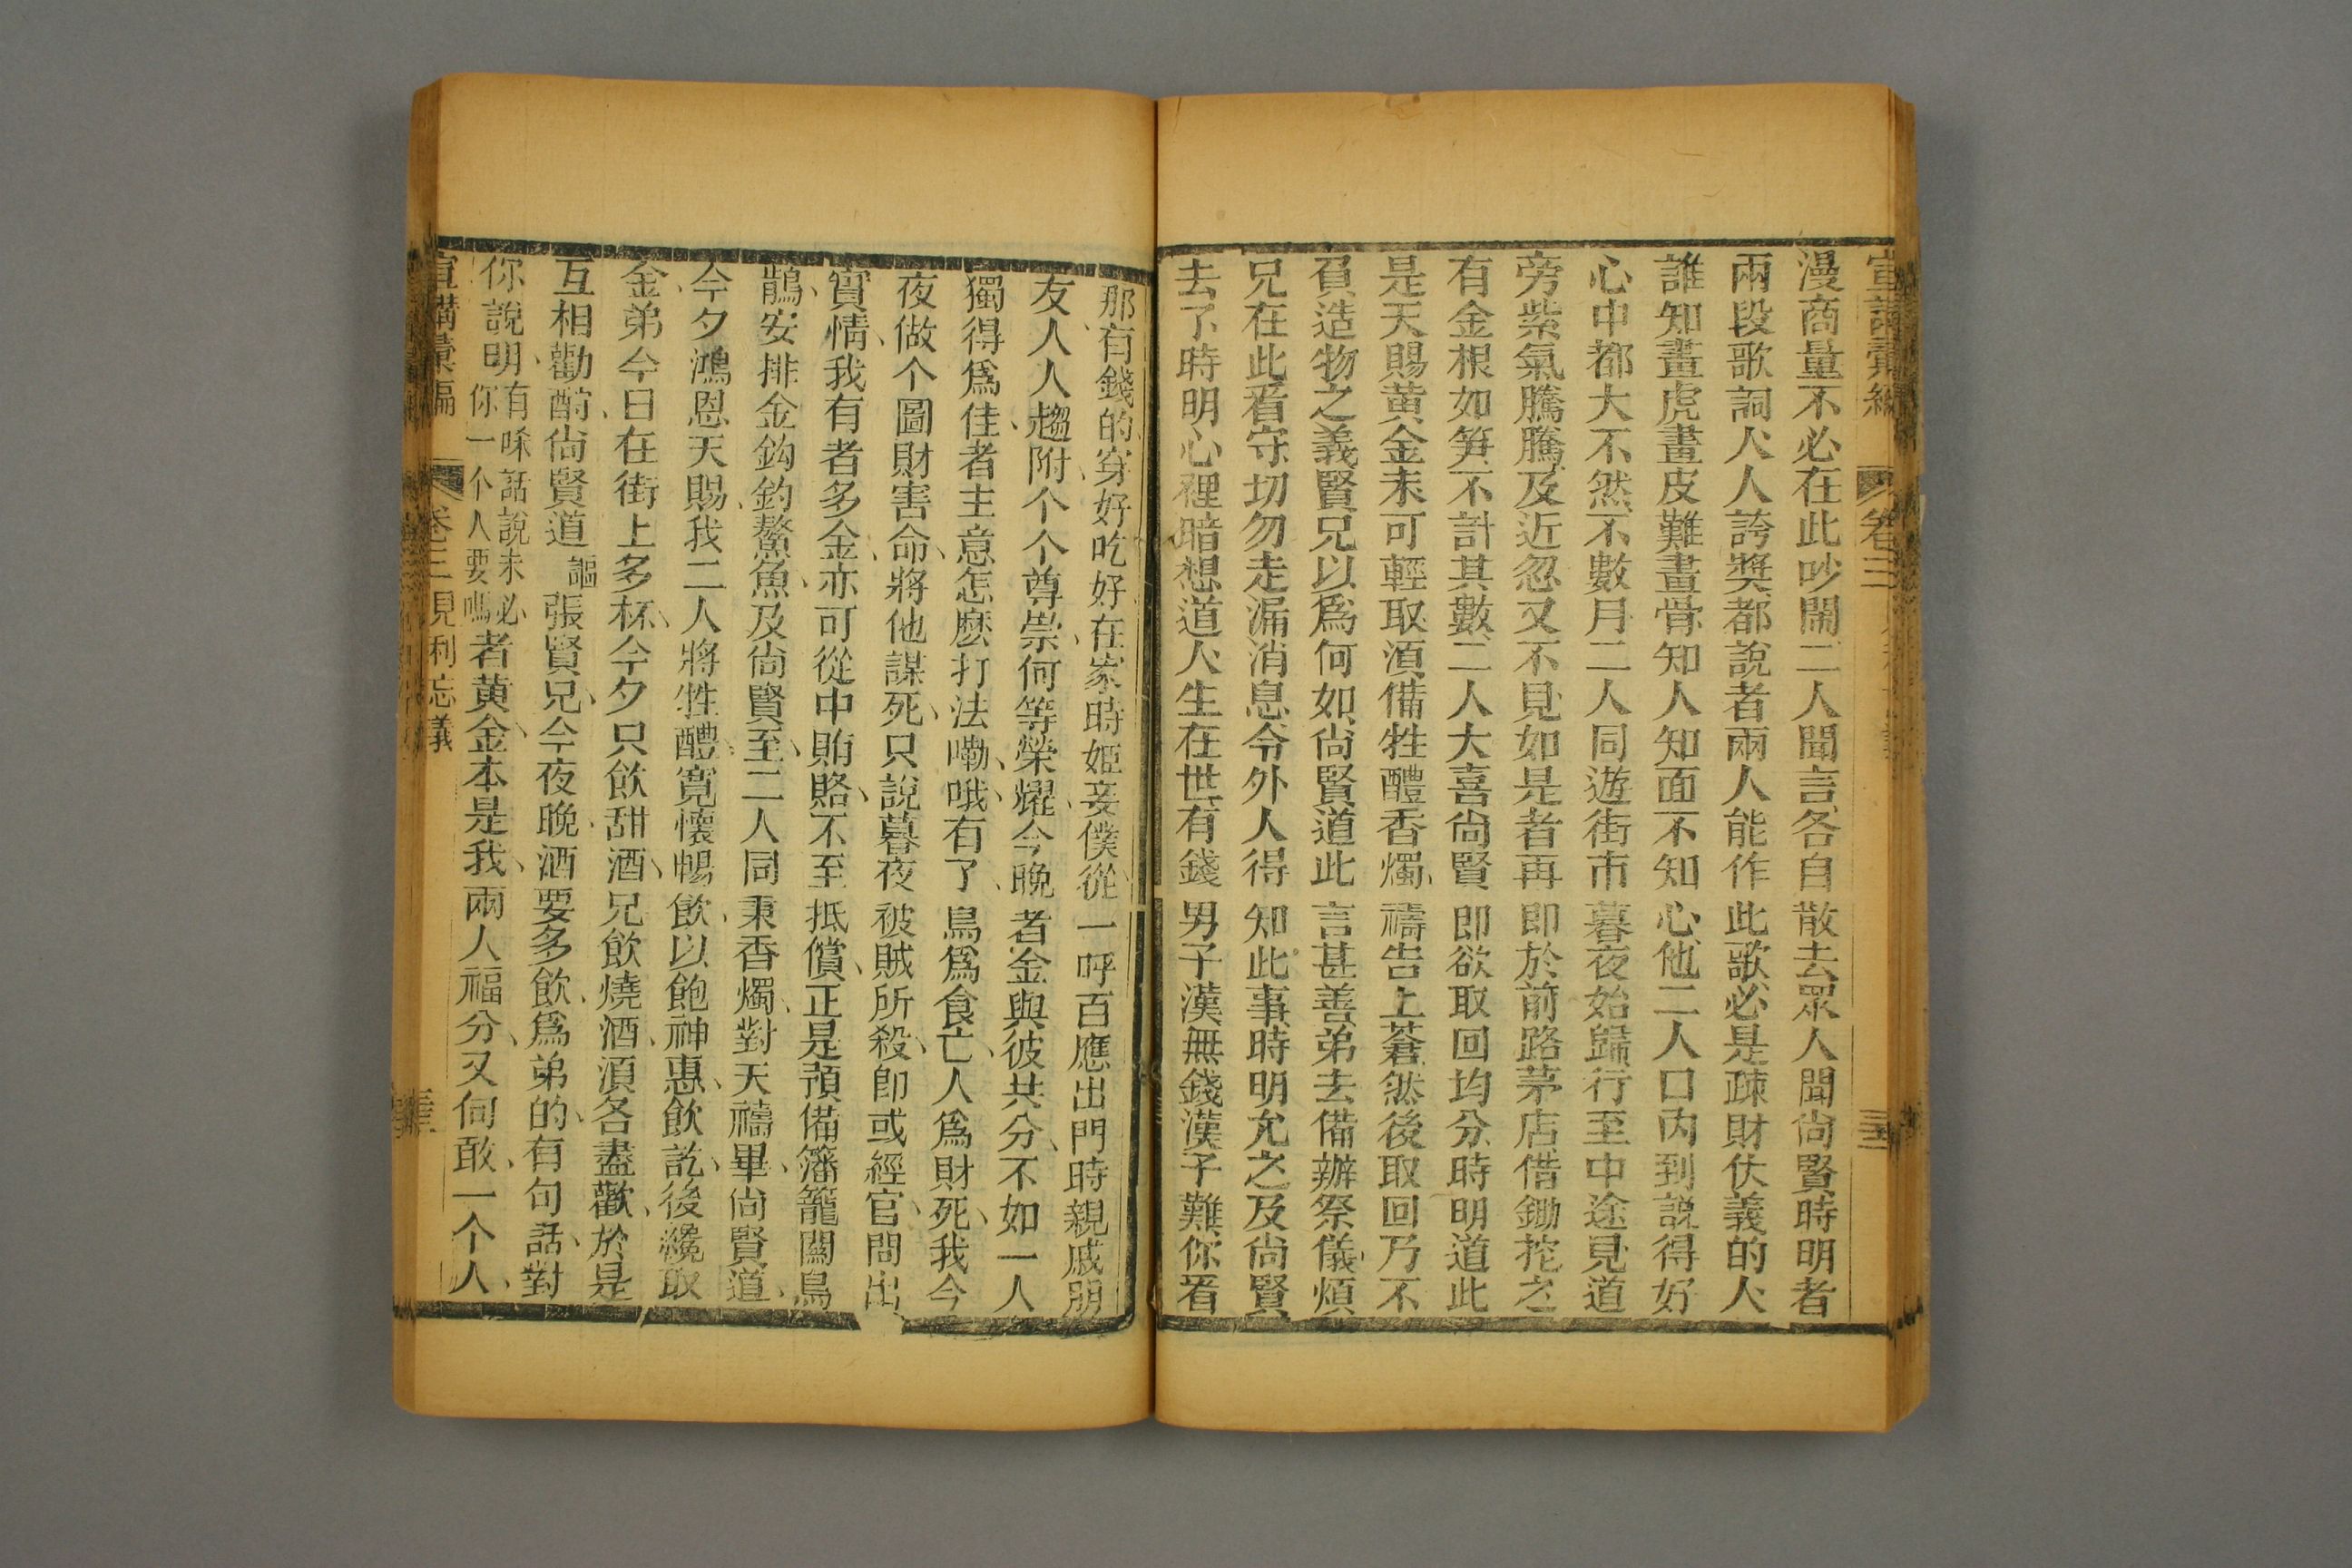 宣講彙編 卷三
漫商量不必在此吵鬧二人聞言各自散去眾人聞尙賢時明者
兩段歌詞人人誇獎都說者兩人能作此歌必是疎財伏義的人
誰知畫虎畫皮難畫骨知人知面不知心他二人口內到說得好
心中都大不然不數月二人同遊街市暮夜始歸行至中途見道
旁紫氣騰騰及近忽又不見如是者再即於前路茅店借鋤挖之
有金根如笋不計其數二人大喜尙賢即欲取回均分時明道此
是天賜黄金未可輕取湏備牲醴香燭禱告上蒼然後取回乃不
負造物之義賢兄以爲何如尙賢道此言甚善弟去備辦祭儀煩
兄在此看守切勿走漏消息令外人得知此事時明允之及尙賢
去了時明心裡暗想道人生在世有錢男子漢無錢漢子難你看
那有錢的穿好吃好在家時姬妾僕從一呼百應出門時親戚朋
友人人趨附个个尊崇何等榮耀今晚者金與彼共分不如一人
獨得爲佳者主意怎麽打法嘞哦有了鳥爲食亡人爲財死我今
夜做个圖財害命將他謀死只說暮夜被賊所殺卽或經官問出
實情我有者多金亦可從中賄賂不至抵償正是預備籓籠關鳥
鵲安排金鈎釣鰲魚及尙賢至二人同秉香燭對天禱畢尙賢道
今夕鴻恩天賜我二人將牲醴寬懷暢飲以飽神惠飲訖後纔取
金弟今日在街上多杯今夕只飲甜酒兄飲燒酒湏各盡歡於是
互相勸酌尙賢道 謳張賢兄今夜晚酒要多飲爲弟的有句話對
你說明有啄話說未必你一个人要嗎者黄金本是我兩人福分又何敢一个人
宣講彙編 卷三 見利忘義